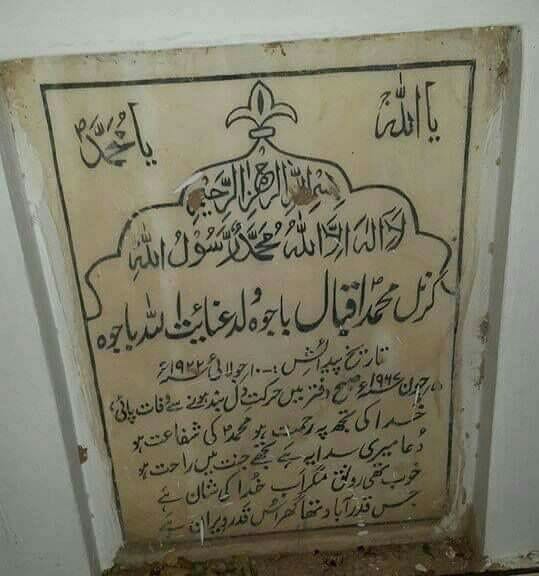 یا اللہ
یا محمدؐ
بسم اللہ الرحمن الرحیم
لا الہ الا اللہ محمد رسول اللہ
کرنل محمدؐ اقبال باجوہ ولد عنایت اللہ باجوہ
تاریخ پیدائش :- ۱۰ جولائی ۱۹۲۲ء
جون ۱۹۶۷ء صبح دفتر میں حرکت دل بند ہونے سے وفات پائی
خدا کی تجھ پر رحمت ہو محمدؐ کی شفاعت ہو
دعا میری سدا یہ ہے تجھے جنت میں راحت ہو
خوب تھی رونق مگر اب خدا کی شان ہے
جس قدر آباد تھا گھر اس قدر ویران ہے